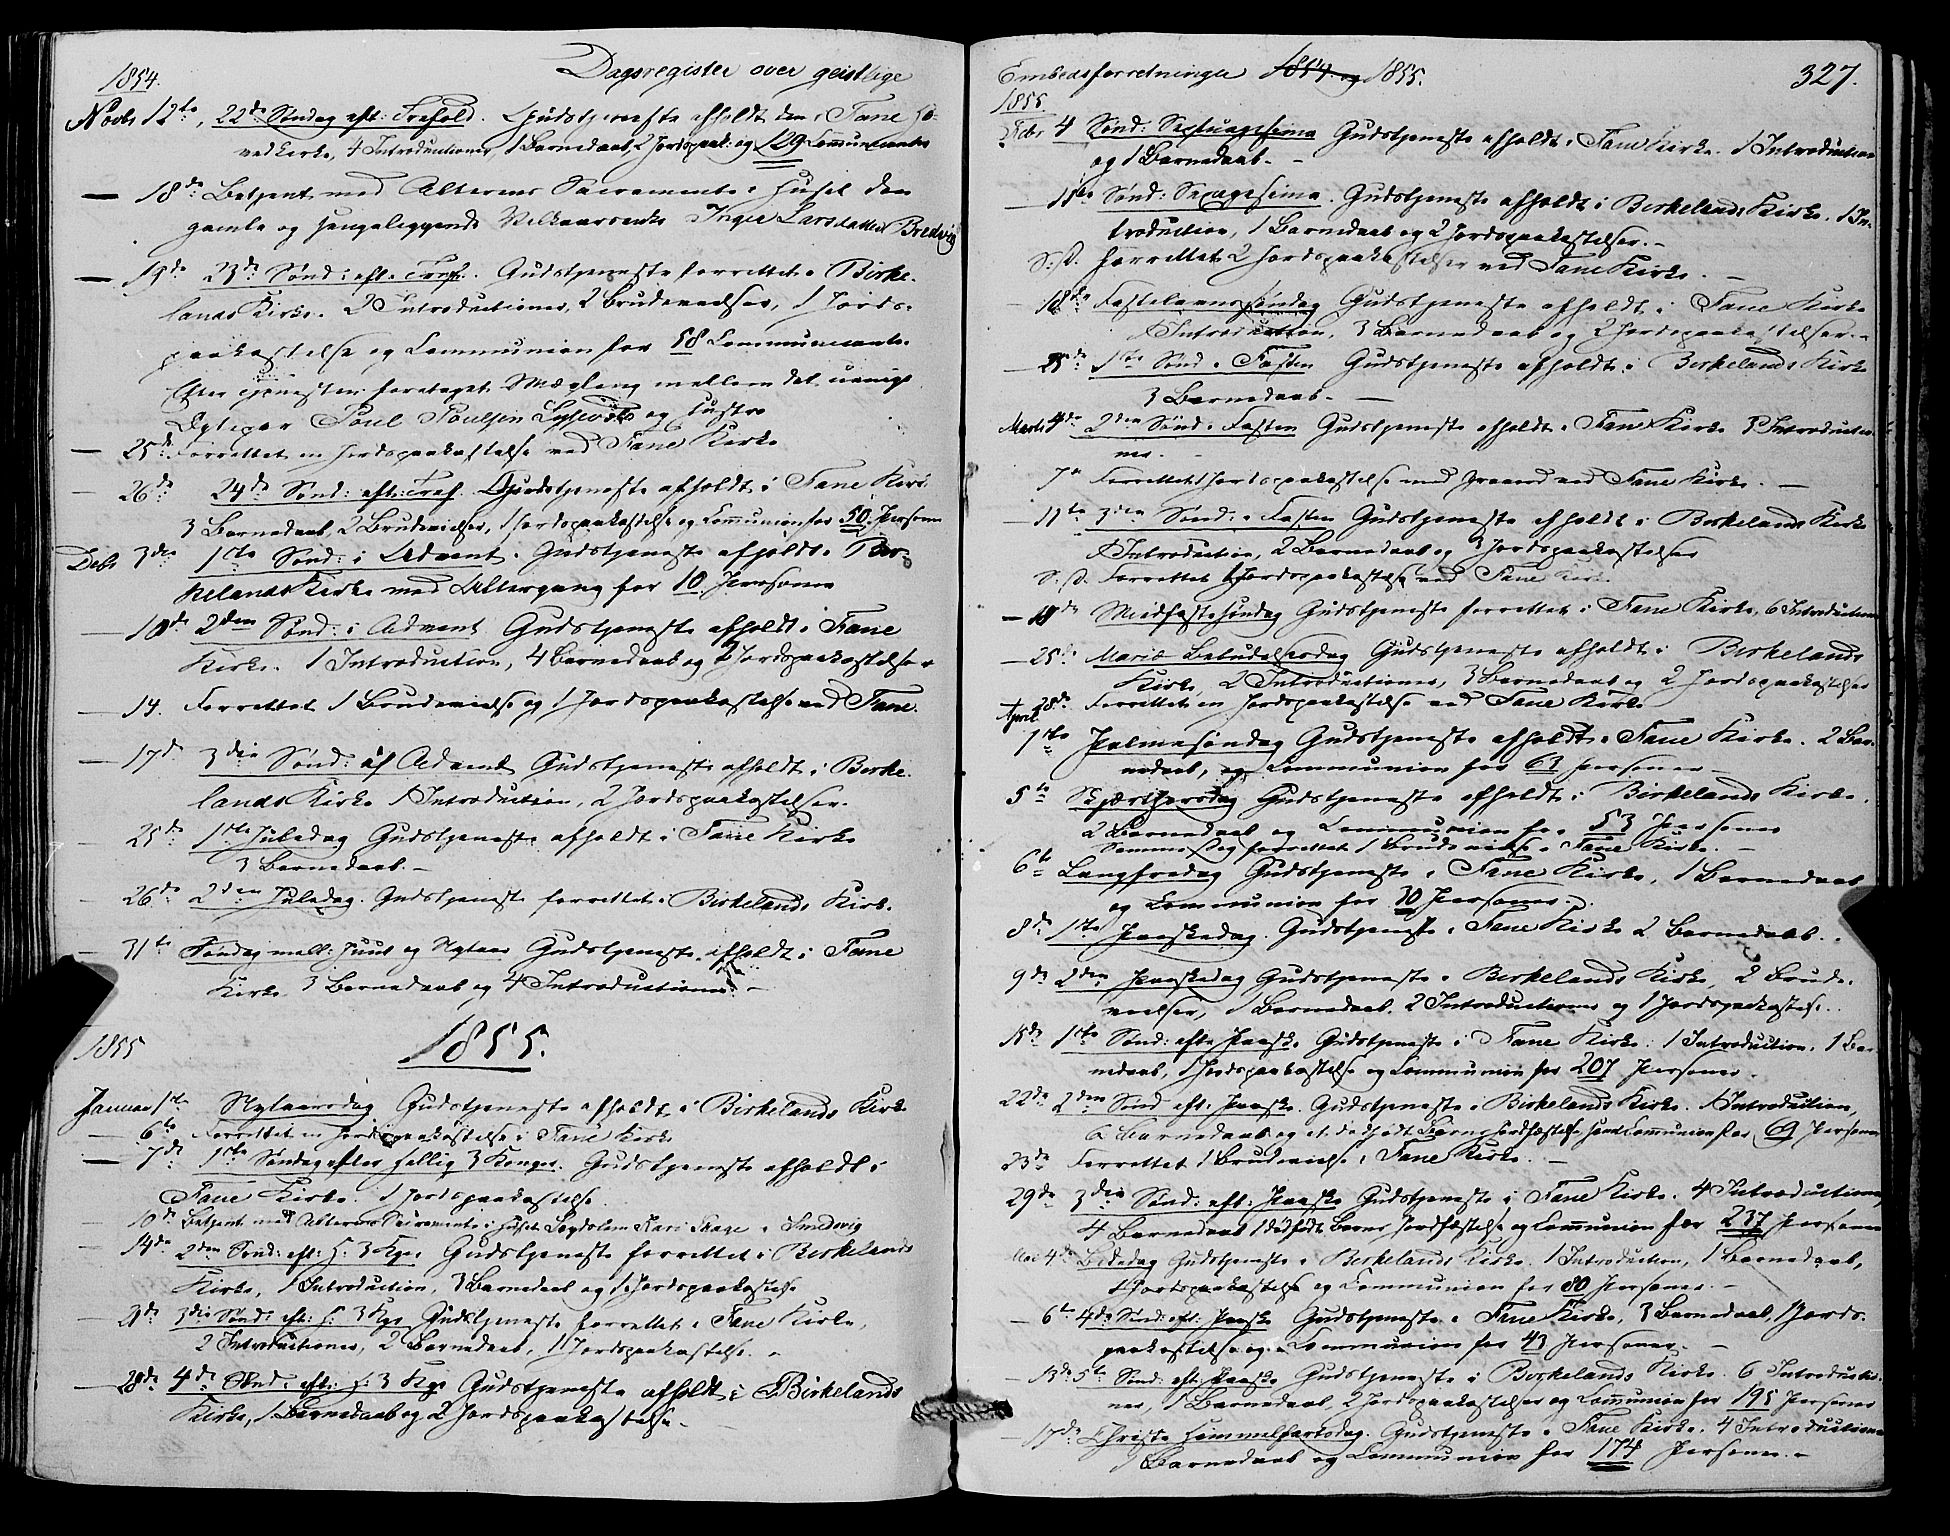 1854.
Dagsregister over geistlige
Novbr 12te, 22de Søndag eft: Trefold. Gudstjeneste afholdt den i Fane Ho-
vedkirke, 4 Introductioner, 1 Barnedaab, 2 Jordspaak: og 129 Communicanter
— 18de Betjent med Alterens Sacramente i Huset den
gamle og sengeliggende Velkaarsenke Inger Larsdatter Bredvig
— 19de 23de Sønd: eft: Tref. Gudstjeneste forrettet i Birke-
lands Kirke. 2 Introductioner, 2 Brudevielser, 1 Jords-
paakastelse og Communion for 58 Communicanter
Efter Tjenesten foretaget Mægling mellem det uenige
Ægtepar Poul Poulsen og Hustro
— 25de Forrettet en Jordspaakastelse ved Fane Kirke
— 26de 24de Sønd: eft: Tref. Gudstjeneste afholdt i Fane Kirke
3 Barnedaab, 2 Brudevielser, 1 Jordspaakastelse og Communion for 50 Personer
Debr 3die 1ste Sønd: i Advent. Gudstjeneste afholdt i Bir-
kelands Kirke med Altergang for 10 Personer
— 10de 2den Sønd: i Advent Gudstjeneste afholdt i Fane
Kirke. 1 Introduction, 4 Barnedaab og 2 Jordspaakastelser
— 14. Forrettet 1 Brudevielse og 1 Jordspaakastelse ved Fane.
— 17de 3die Sønd: af Advent Gudstjeneste afholdt i Birke-
lands Kirke 1 Introduction, 2 Jordspaakastelser.
— 25de 1ste Juledag Gudstjeneste afholdt i Fane Kirke
3 Barnedaab. —
— 26de 2den Juledag. Gudstjeneste forrettet i Birkelands Kirke.
— 31te Søndag mell: Juul og Nytaar Gudstjeneste afholdt i Fane
Kirke 3 Barnedaab og 4 Introductioner. —
1855
1855.
Januar 1ste Nytaarsdag Gudstjeneste afholdt i Birkelands Kirke
— 6te Forrettet en Jordspaakastelse i Fane Kirke
— 7de 1ste Søndag efter hellig 3 Konger. Gudstjeneste afholdt i
Fane Kirke. 1 Jordspaakastelse.
— 10de Betjent med Alterens Sacramente i Huset Kari i Smidvig
— 14de 2den Sønd: eft: H: 3 Kgr Gudstjeneste forrettet i Birkelands
Kirke, 1 Introduction, 3 Barnedaab og 1 Jordspaakastelse
— 21de 3die Sønd: eft: H: 3 Kgr Gudstjeneste forrettet i Fane Kirke,
2 Introductioner, 2 Barnedaab, 1 Jordspaakastelse. —
— 28de 4de Sønd: eft: H: 3 Kgr Gudstjeneste afholdt i Birkelands
Kirke, 1 Barnedaab og 2 Jordspaakastelse.
Embedsforretninger 1854 og 1855.
327.
1855.
Febr 4 Sønd: Septuagesima Gudstjeneste afholdt i Fane Kirke. 1 Introduction
og 1 Barnedaab. —
— 11te Sønd: Sexagesima. Gudstjeneste afholdt i Birkelands Kirke. 1 In-
troduction, 1 Barnedaab og 2 Jordspaakastelser. —
S: D. Forrettet 2 Jordspaakastelser ved Fane Kirke. —
— 18de Fastelavnssøndag Gudstjeneste afholdt i Fane Kirke
1 Introduction, 3 Barnedaab og 2 Jordspaakastelser. —
— 25de 1ste Sønd i Fasten Gudstjeneste afholdt i Birkelands Kirke
3 Barnedaab. —
Marts 4de 2den Sønd i Fasten Gudstjeneste afholdt i Fane Kirke 3 Introductio-
ner. —
7de Forrettet 1 Jordspaakastelse ved Fane Kirke. —
— 11te 3die Sønd: i Fasten Gudstjeneste afholdt i Birkelands Kirke
1 Introduction, 2 Barnedaab og 3 Jordspaakastelser
S: D. Forrettet 1 Jordspaakastelse ved Fane Kirke.
— 18de Midfastesøndag Gudstjeneste forrettet i Fane Kirke, 6 Introductioner
— 25de Mariæ Bebudelsesdag Gudstjeneste afholdt i Birkelands
Kirke, 2 Introductioner, 3 Barnedaab og 2 Jordspaakastelser
28de Forrettet en Jordspaakastelse ved Fane Kirke
April
1ste Palmesøndag Gudstjeneste afholdt i Fane Kirke. 2 Bar-
nedaab, og Communion for 63 Personer —
5te Skjærthorsdag Gudstjeneste afholdt i Birkelands Kirke.
2 Barnedaab og Communion for 53 Personer
Samme Dag forrettet 1 Brudevielse i Fane Kirke. —
6te Langfredag Gudstjeneste i Fane Kirke, 1 Barnedaab
og Communion for 30 Personer.
8de 1ste Paaskedag. Gudstjeneste i Fane Kirke 2 Barnedaab.
9de 2den Paaskedag Gudstjeneste i Birkelands Kirke, 2 Brude-
vielser, 1 Barnedaab, 2 Introductioner og 1 Jordspaakastelse.
15de 1ste Sønd: eft: Paaske Gudstjeneste i Fane Kirke. 1 Introduction, 1 Bar-
nedaab, 1 Jordspaakastelse og Communion for 207 Personer
22de 2den Sønd eft: Paaske. Gudstjeneste i Birkelands Kirke. 1 Introduction,
6 Barnedaab og et dødfødt Barns Jordfæstelse, samt Communion for 69 Personer
23de Forrettet 1 Brudevielse i Fane Kirke. —
29de 3die Sønd: eft: Paaske Gudstjeneste i Fane Kirke. 4 Introductioner,
4 Barnedaab 1 dødfødt Barns Jordfæstelse, og Communion for 237 Personer
Mai 4de Bededag Gudstjeneste i Birkelands Kirke. 1 Introduction, 1 Barnedaab,
1 Jordspaakastelse og Communion for 80 Personer. —
— 6te 4de Sønd: eft: Paaske Gudstjeneste i Fane Kirke, 3 Barnedaab, 1 Jords-
paakastelse og Communion for 43 Personer. —
— 13de 5te Sønd: eft: Paaske Gudstjeneste i Birkelands Kirke. 6 Introductio-
ner, 1 Barnedaab, 2 Jordspaakastelser og Communion for 195 Personer
— 17de Christi Himmelfartsdag. Gudstjeneste i Fane Kirke. 4 Introductioner
1 Barnedaab og Communion for 174 Personer. —